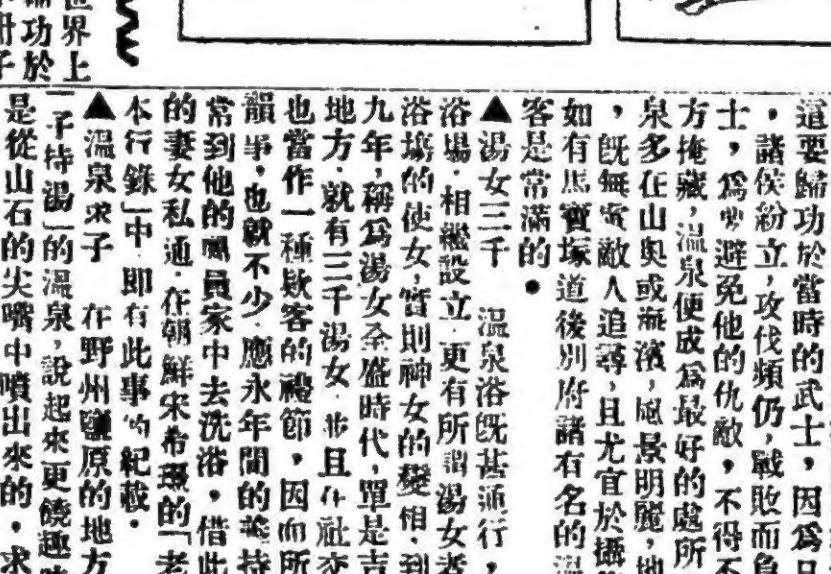 這要歸功於當時的武士，因爲日
，諸侯紛立，攻伐頻仍，戰敗而負
士，爲要避免他的仇敵，不得不
方掩藏，溫泉便成爲最好的處所
泉多在山奧或海濱，風景明麗，地
，既無敵人追尋，且尤宜於攝
如有馬寳塚道後別府諸有名的溫
客是常滿的。
▲湯女三千　溫泉浴既甚通行，
浴場，相繼設立，更有所謂湯女者
浴塲的使女，實則神女的變相，到
九年，稱爲湯女全盛時代，單是吉
地方，就有三千湯女，並且在社交
也當作一種欵客的禮節，因而所
韻事，也就不少，應永年間的義持
常到他的屬員家中去洗浴，借此
的妻女私通，在朝鮮宋希璟的「老
本行錄」中，即有此事的紀載。
▲溫泉求子　在野州鹽原的地方
「子持湯」的溫泉，說起來更饒趣味
是從山石的尖嘴中噴出來的，求
世界上
功於
冊子